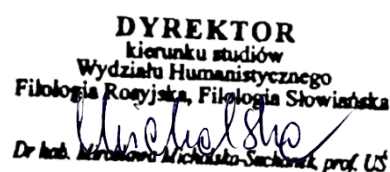 DYREKTOR
kierunku studiów
Wydziału Humanistycznego
Filologia Rosyjska, Filologia Słowiańska
Michalska
Dr hab. Mirosława Michalska-Suchanek, prof. UŚ